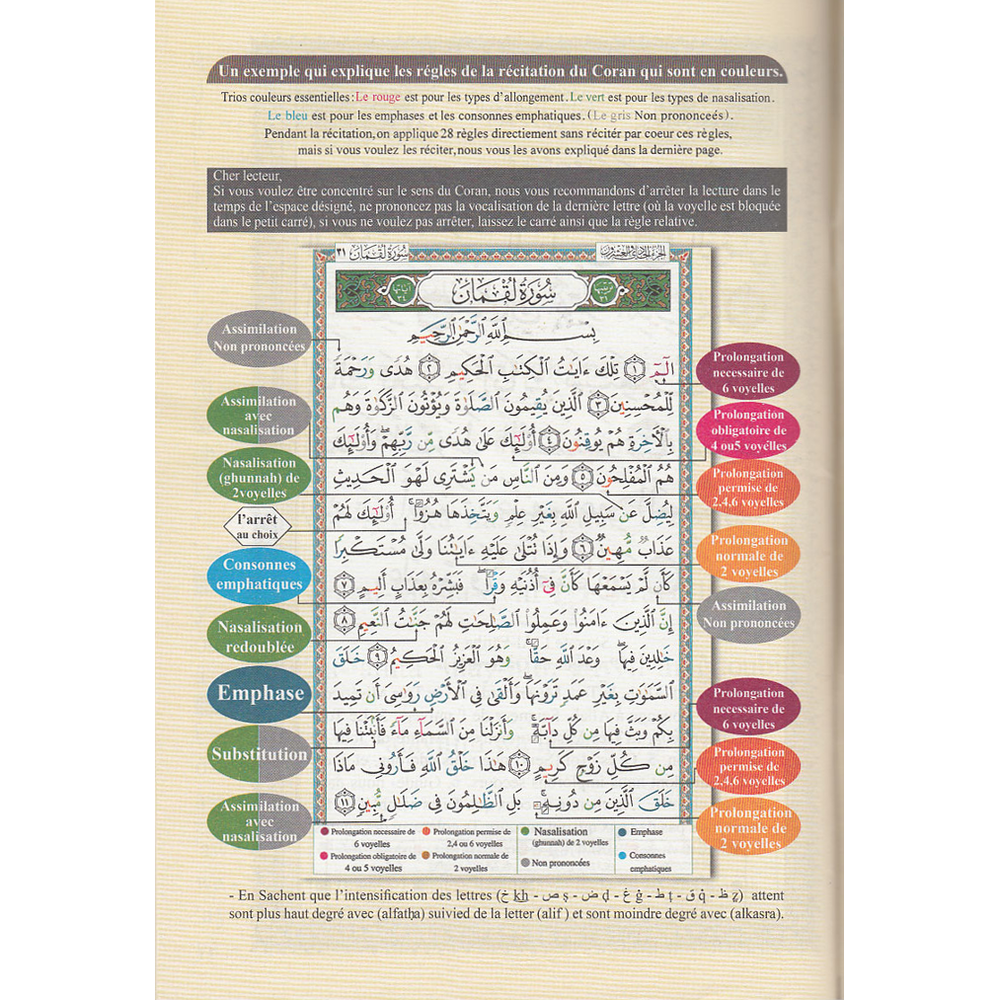 Un exemple qui explique les régles de la récitation du Coran qui sont en couleurs.
Trios couleurs essentielles:Le rouge est pour les types d'allongement.Le vert est pour les types de nasalisation.
Le bleu est pour les emphases et les consonnes emphatiques.(Le gris Non prononceés).
Pendant la récitation,on applique 28 règles directiement sans récité par coeur ces règles,
mais si vous voulez les réciter,nous vous les avons expliqué dans la dernière page.
Cher lecteur,
Si vous voulez être concentré sur le sens du Coran, nous vous recommandons d'arrêter la lecture dans le
temps de l'espace désigné, ne prononcez pas la vocalisation de la dernière lettre (où la voyelle est bloquée
dans le petit carré), si vous ne voulez pas arrêter, laissez le carré ainsi que la règle relative.
سُورَةُ لُقْمَان ٣١
الجزء الحادي والعشرون
سُورَةُ لُقْمَان
بِسْمِ ٱللَّهِ ٱلرَّحْمَٰنِ ٱلرَّحِيمِ
الٓمٓ ١ تِلْكَ ءَايَٰتُ ٱلْكِتَٰبِ ٱلْحَكِيمِ ٢ هُدًى وَرَحْمَةً
لِّلْمُحْسِنِينَ ٣ ٱلَّذِينَ يُقِيمُونَ ٱلصَّلَوٰةَ وَيُؤْتُونَ ٱلزَّكَوٰةَ وَهُم
بِٱلْءَاخِرَةِ هُمْ يُوقِنُونَ ٤ أُو۟لَٰٓئِكَ عَلَىٰ هُدًى مِّن رَّبِّهِمْ ۖ وَأُو۟لَٰٓئِكَ
هُمُ ٱلْمُفْلِحُونَ ٥ وَمِنَ ٱلنَّاسِ مَن يَشْتَرِى لَهْوَ ٱلْحَدِيثِ
لِيُضِلَّ عَن سَبِيلِ ٱللَّهِ بِغَيْرِ عِلْمٍ وَيَتَّخِذَهَا هُزُوًا ۚ أُو۟لَٰٓئِكَ لَهُمْ
عَذَابٌ مُّهِينٌ ٦ وَإِذَا تُتْلَىٰ عَلَيْهِ ءَايَٰتُنَا وَلَّىٰ مُسْتَكْبِرًا
كَأَن لَّمْ يَسْمَعْهَا كَأَنَّ فِىٓ أُذُنَيْهِ وَقْرًا ۖ فَبَشِّرْهُ بِعَذَابٍ أَلِيمٍ ٧
إِنَّ ٱلَّذِينَ ءَامَنُوا۟ وَعَمِلُوا۟ ٱلصَّٰلِحَٰتِ لَهُمْ جَنَّٰتُ ٱلنَّعِيمِ ٨
خَٰلِدِينَ فِيهَا ۖ وَعْدَ ٱللَّهِ حَقًّا ۚ وَهُوَ ٱلْعَزِيزُ ٱلْحَكِيمُ ٩ خَلَقَ
ٱلسَّمَٰوَٰتِ بِغَيْرِ عَمَدٍ تَرَوْنَهَا ۖ وَأَلْقَىٰ فِى ٱلْأَرْضِ رَوَٰسِىَ أَن تَمِيدَ
بِكُمْ وَبَثَّ فِيهَا مِن كُلِّ دَآبَّةٍ ۚ وَأَنزَلْنَا مِنَ ٱلسَّمَآءِ مَآءً فَأَنۢبَتْنَا فِيهَا
مِن كُلِّ زَوْجٍ كَرِيمٍ ١٠ هَٰذَا خَلْقُ ٱللَّهِ فَأَرُونِى مَاذَا
خَلَقَ ٱلَّذِينَ مِن دُونِهِۦ ۚ بَلِ ٱلظَّٰلِمُونَ فِى ضَلَٰلٍ مُّبِينٍ ١١
Assimilation
Non prononcées
Assimilation
avec
nasalisation
Nasalisation
(ghunnah) de
2voyelles
l'arrêt
au choix
Consonnes
emphatiques
Nasalisation
redoublée
Emphase
Substitution
Assimilation
avec
nasalisation
Prolongation
necessaire de
6 voyelles
Prolongation
obligatoire de
4 ou5 voyélles
Prolongation
permise de
2,4,6 voyelles
Prolongation
normale de
2 voyelles
Assimilation
Non prononcées
Prolongation
necessaire de
6 voyelles
Prolongation
permise de
2,4,6 voyelles
Prolongation
normale de
2 voyelles
Prolongation necessaire de
6 voyelles
Prolongation permise de
2,4 ou 6 voyelles
Nasalisation
(ghunnah) de 2 voyelles
Emphase
Prolongation obligatoire de
4 ou 5 voyelles
Prolongation normale de
2 voyelles
Non prononcées
Consonnes
emphatiques
- En Sachent que l'intensification des lettres (خ kh - ص ṣ - ض ḍ - غ ġ - ط ṭ - ق q̇ - ظ ẓ) attent
sont plus haut degré avec (alfatḥa) suivied de la letter (alif ) et sont moindre degré avec (alkasra).